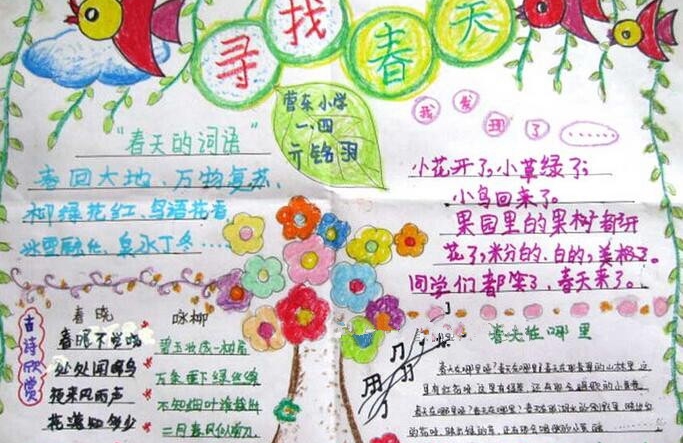 寻找春天
曹东小学
一、四
亓铭羽
"春天的词语"
春回大地、万物复苏、
柳绿花红、鸟语花香
冰雪融化、泉水丁冬……
我发现了……
小花开了,小草绿了;
小鸟回来了。
果园里的果树都开
花了,粉的、白的,美极了。
同学们都笑了,春天来了。
古诗欣赏
春晓
春眠不觉晓
处处闻啼鸟
夜来风雨声
花落知多少
咏柳
碧玉妆成一树高
万条垂下绿丝绦
不知细叶谁裁出
二月春风似剪刀
春天在哪里
春天在哪里呀?春天在哪里?春天在那青翠的山林里,这
里有红花呀,这里有绿草,还有那会唱歌的小黄鹂